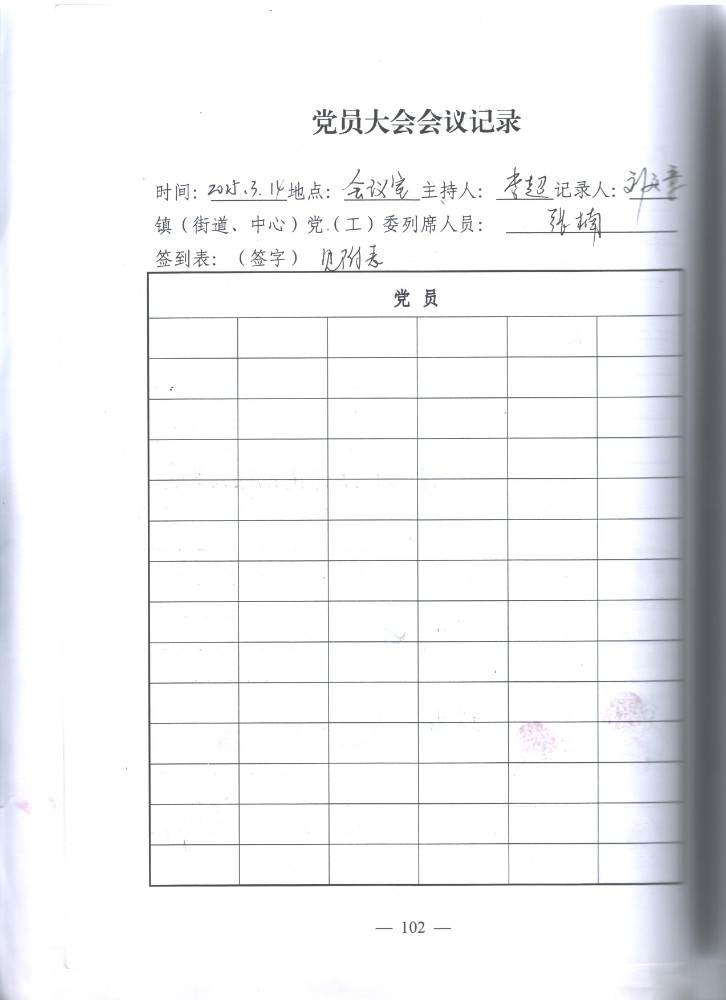 党员大会会议记录
时间：2025.3.14地点：会议室 主持人：李超 记录人：刘文章
镇（街道、中心）党（工）委列席人员：张楠
签到表：（签字）见附表
党 员
— 102 —